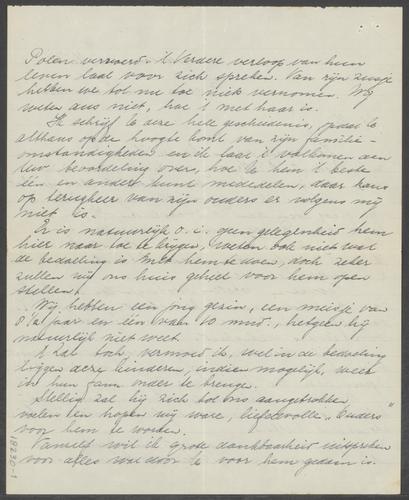 Polen vervoerd. 't Verdere verloop van hun
leven laat voor zich spreken. Van zijn zusje
hebben we tot nu toe niets vernomen. Wij
weten dus niet, hoe 't met haar is.
Ik schrijf U deze hele geschiedenis, opdat U
althans op de hoogte komt van zijn familie-
omstandigheden en ik laat 't volkomen aan
Uw beoordeling over, hoe U hem 't beste
één en ander kunt mededelen, daar kans
op terugkeer van zijn ouders er volgens mij
niet is.
Er is natuurlijk o.i. geen gelegenheid hem
hier naar toe te krijgen, weten ook niet wat
de bedoeling is met hem te doen, doch zeker
zullen wij ons huis geheel voor hem open
stellen.
Wij hebben een jong gezin, een meisje van
8 1/2 jaar en één van 10 mnd., hetgeen hij
natuurlijk niet weet.
't Zal toch, vermoed ik, wel in de bedoeling
liggen deze kinderen, indien mogelijk, weer
in hun fam. onder te brengen.
Stellig zal hij zich tot ons aangetrokken
voelen en hopen wij ware, liefdevolle "ouders"
voor hem te worden.
Vanzelf wil ik grote dankbaarheid uitspreken
voor alles wat door U voor hem gedaan is.
18230-1